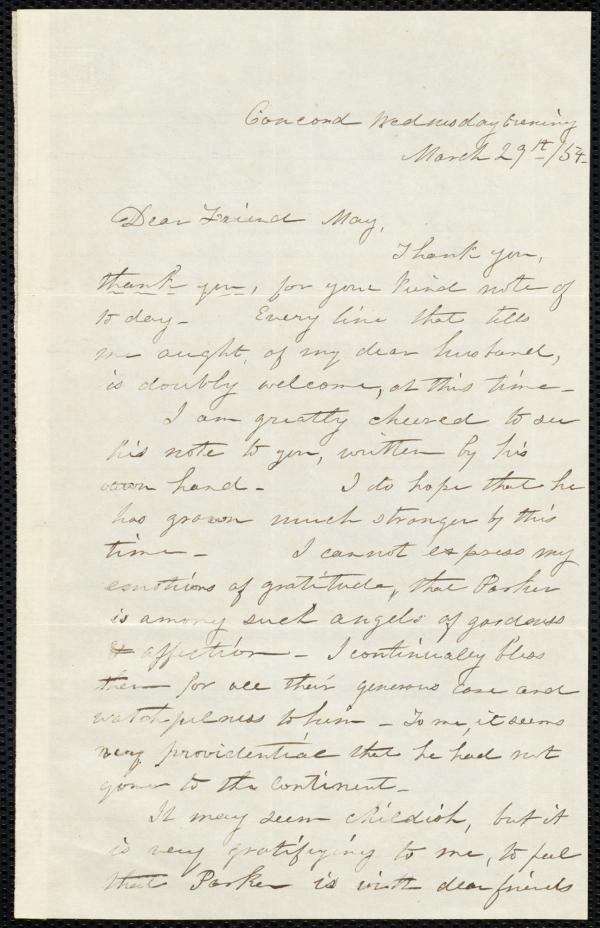 Concord Wednesday Evening
March 29th/54.
Dear Friend May,
Thank you,
thank you, for your kind note of
to day - Every line that tells
me aught, of my dear husband,
is doubly welcome, at this time -
I am greatly cheered to see
his note to you, written by his
own hand - I do hope that he
has grown much stronger by this
time - I cannot express my
emotions of gratitude, that Parker
is among such angels of goodness
& affection - I continually bless
them for all their generous care and
watchfulness to him - To me, it seems
very providential that he had not
gone to the Continent -
It may seem childish, but it
is very gratifying to me, to feel
that Parker is with dear friends